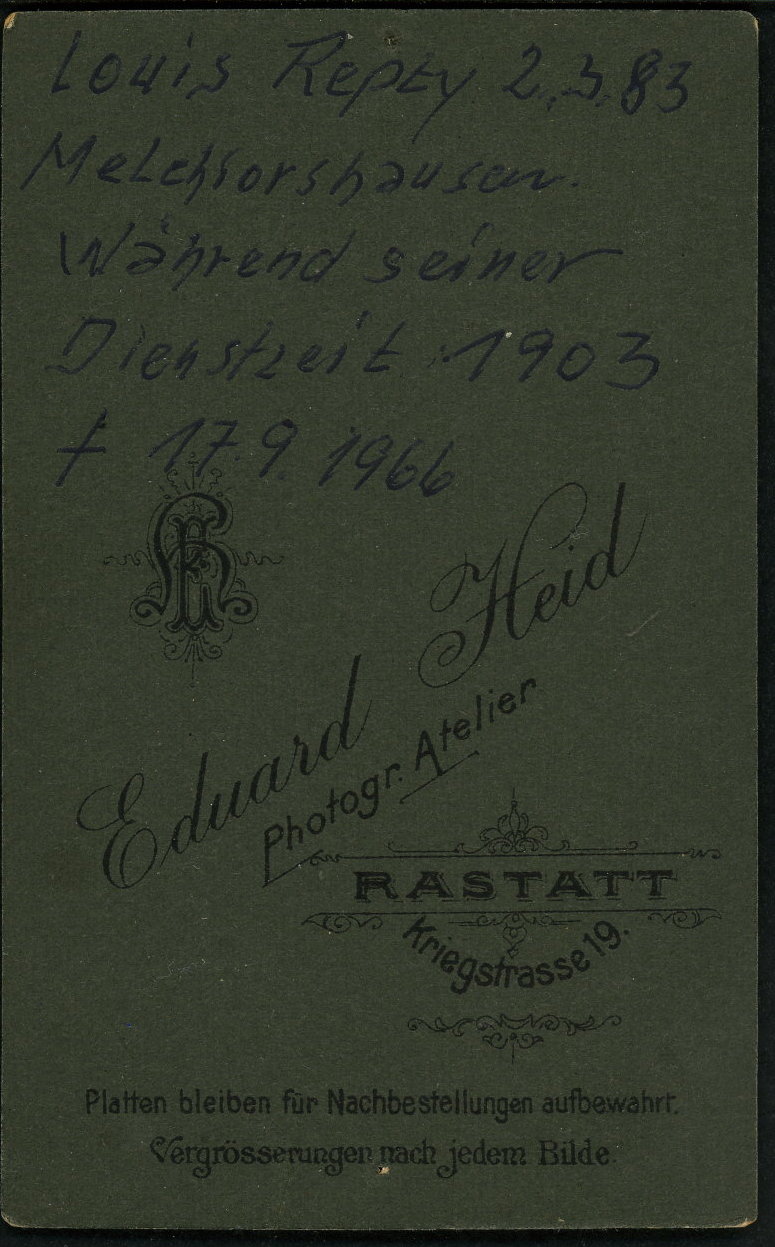 Louis Repty 2.3.83
Melchiorshausen.
Während seiner
Dienstzeit 1903
† 17.9.1966
EH
Eduard Heid
Photogr. Atelier
RASTATT
Kriegstrasse 19.
Platten bleiben für Nachbestellungen aufbewahrt.
Vergrösserungen nach jedem Bilde.